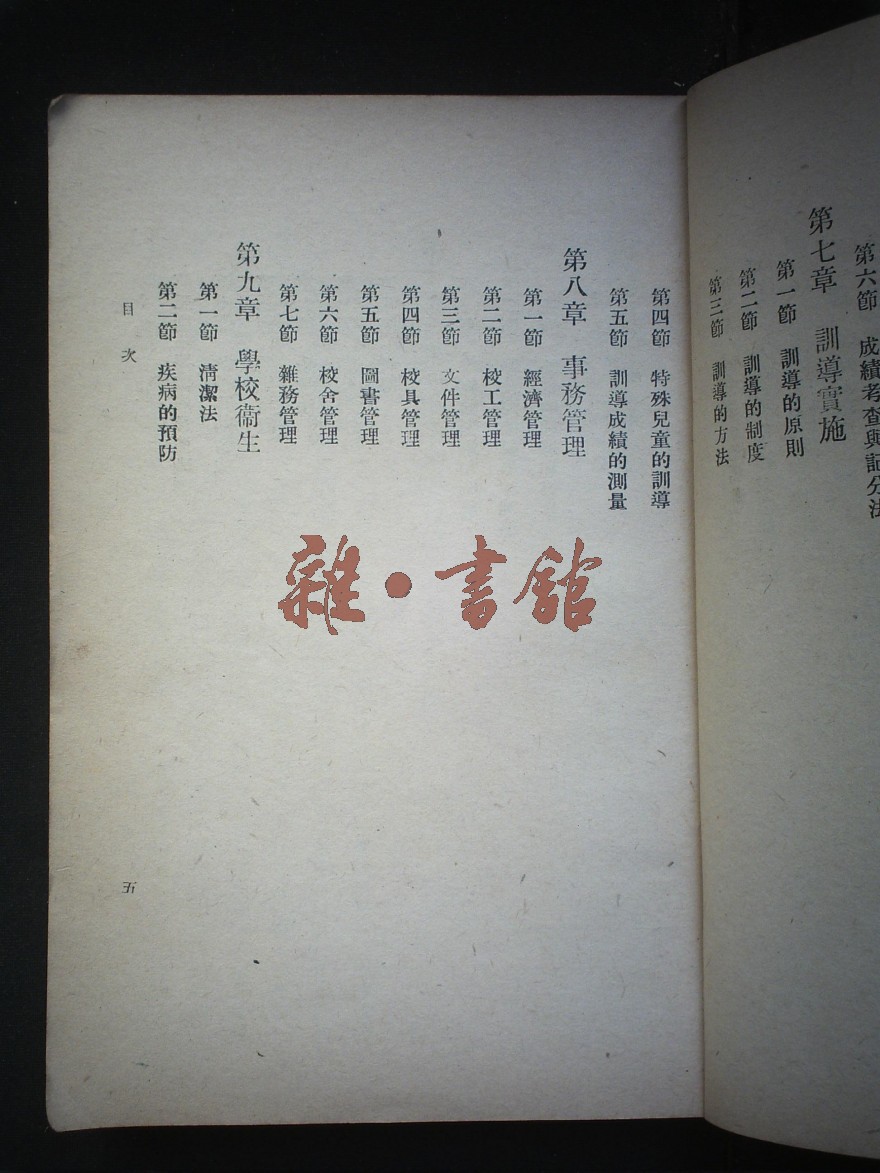 第六節 成績考查與記分法
第七章 訓導實施
第一節 訓導的原則
第二節 訓導的制度
第三節 訓導的方法
第四節 特殊兒童的訓導
第五節 訓導成績的測量
第八章 事務管理
第一節 經濟管理
第二節 校工管理
第三節 文件管理
第四節 校具管理
第五節 圖書管理
第六節 校舍管理
第七節 雜務管理
第九章 學校衞生
第一節 清潔法
第二節 疾病的預防
目次
五
雜•書館